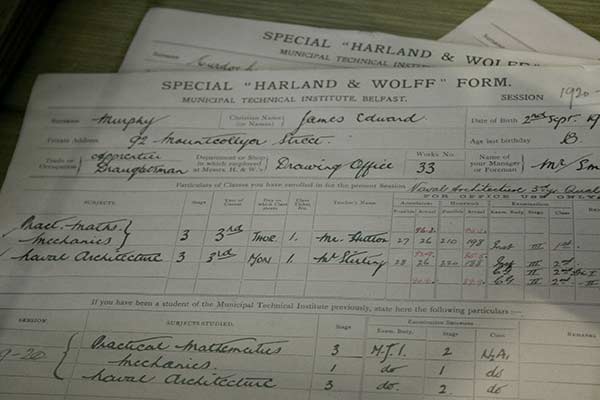 SPECIAL "HARLAND & WOLFF"
MUNICIPAL TECHNICAL INSTITUTE
SPECIAL "HARLAND & WOLFF" FORM.
MUNICIPAL TECHNICAL INSTITUTE, BELFAST.
SESSION 1920-
Surname Murphy Christian Name (or Names) James Edward Date of Birth 2nd Sept. 19
Private Address 92 Mountcollyer Street. Age last birthday
Trade or Occupation Apprentice Draughtsman Department or Shop in which employed at Messrs. H. & W.'s Drawing Office Works No. 33 Name of your Manager or Foreman Mr Sm
Particulars of Classes you have enrolled in for the present Session Naval Architecture 3 yr. Qual
FOR OFFICE USE ONLY
SUBJECTS. Stage Year of Course Day on which Class meets Class Ticket No. Teacher's Name Attendances Homework Examination
Possible Actual Possible Actual Exam. Body. Stage Class
Pract. Maths. 3 3rd Thur. 1. Mr. Hutton 27 26 210 198 Inst III 1st
Mechanics
Naval Architecture 3 3rd Mon 1. Mr Stirling 28 26 220 188 Inst III 2nd
CG II 2nd
CG II 2nd
If you have been a student of the Municipal Technical Institute previously, state here the following particulars :—
SESSION SUBJECTS STUDIED. Stage Examination Successes REMARKS
Exam. Body. Stage Class
9-20 Practical Mathematics 3 M.T.I. 2
Mechanics. 1 do 1 do
Naval Architecture 3 do. 2 do